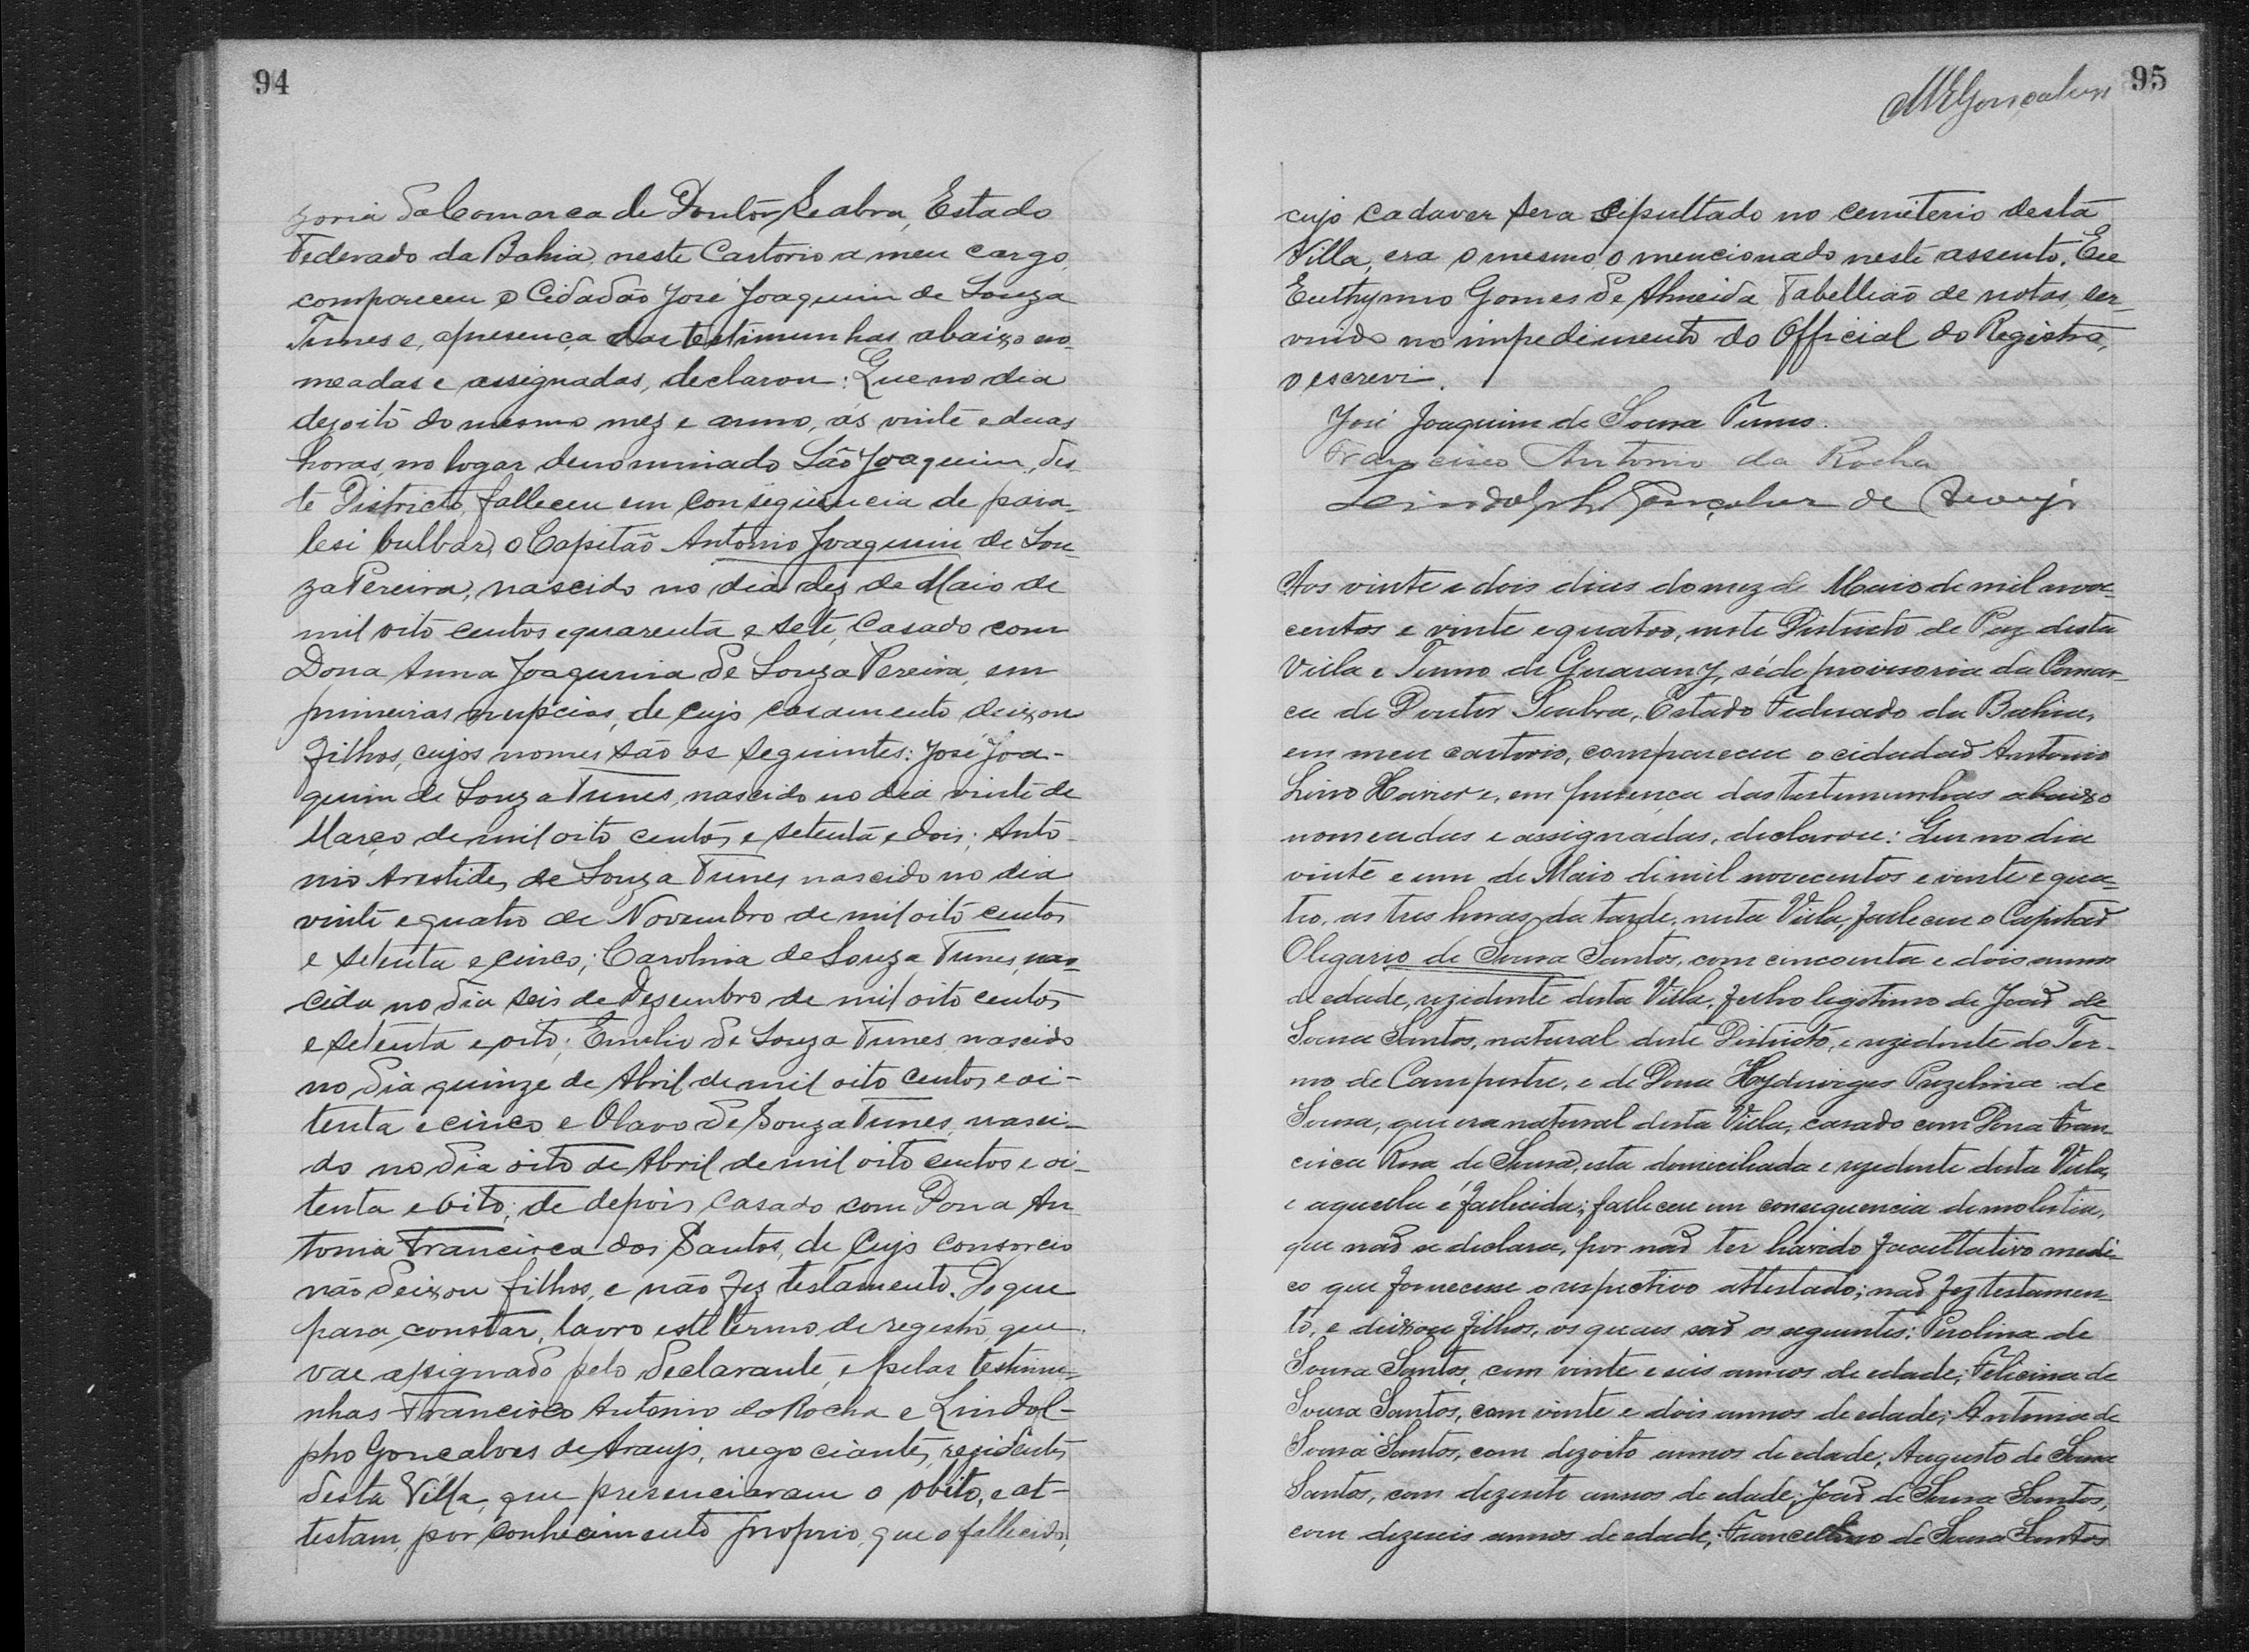 94
soria da Comarca de Doutôr Seabra, Estado
Federado da Bahia, neste Cartorio a meu cargo,
compareceu o Cidadão José Joaquim de Souza
Tunes e, apresença das testimunhas abaixo no-
meadas e assignadas, declarou: Que no dia
desoito do mesmo mez e anno, ás vinte e duas
horas, no logar denominado São Joaquim, des-
te Districto, falleceu em conseguencia de para-
lesi bulbar, o Capitão Antonio Joaquim de Sou-
za Pereira, nascido no dia dez de Maio de
mil oito centos e quarenta e sete, Casado com
Dona Anna Joaquina de Souza Pereira, em
primeiras nupcias, de cujo casamento deixou
filhos, cujos nomes são os seguintes: José Joa-
quim de Souza Tunes, nascido no dia vinte de
Março de mil oito centos e setenta e dois; Anto-
nio Arestides de Souza Tunes nascido no dia
vinte e quatro de Novembro de mil oito centos
e setenta e cinco; Carolina de Souza Tunes, nas-
cida no dia seis de Dezembro de mil oito centos
e setenta e oito; Emilio de Souza Tunes, nascido
no dia quinze de Abril de mil oito centos e oi-
tenta e cinco e Olavo de Souza Tunes, nasci-
do no dia oito de Abril de mil oito centos e oi-
tenta e oito; de depois casado com Dona An-
tonia Francisca dos Santos, de Cujo consorcio
não deixou filhos, e não fez testamento. Do que
para constar, lavro este termo de registo, que
vae assignado pelo declarante, e pelas testimu-
nhas Francisco Antonio da Rocha e Lindol-
pho Goncalves de Araujo, negociantes, residentes
desta Villa, que presenciaram o obito, e at-
testam, por conhecimento proprio, que o fallecido,
95
MEGonçalves
cujo cadaver sera sepultado no cemiterio desta
Villa, era o mesmo, o mencionado neste assento. Eu
Euthymio Gomes de Almeida Tabellião de notas, ser-
vindo no impedimento do Official do Registro,
o escrevi.
José Joaquim de Sousa Tunes.
Francisco Antonio da Rocha
Lindolpho Gonçalves de Araujo
Aos vinte e dois dias do mez de Maio de mil nove-
centos e vinte e quatro, neste Districto de Paz desta
Villa e Termo de Guarany, séde provisoria da Comar-
ca de Doutor Seabra, Estado Federado da Bahia,
em meu cartorio, compareceu o cidadaõ Antonio
Lino Xavier e, em presença das testemunhas abaixo
nomeadas e assignadas, declarou: Que no dia
vinte e um de Maio de mil novecentos e vinte e qua-
tro, as tres horas da tarde, nesta Villa, falleceu o Capitaõ
Olegario de Sousa Santos, com cincoenta e dois annos
de edade, rezidente desta Villa, filho legitimo de Joaõ de
Sousa Santos, natural deste Districto, e rezidente do Ter-
mo de Campestre, e de Dona Hedwirges Puzelina de
Sousa, que era natural desta Villa, casado com Dona Fran-
cisca Rosa de Sousa, esta domiciliada e rezidente desta Villa,
e aquella é fallecida; falleceu em consequencia de molestia,
que naõ se declara, por naõ ter havido facultativo medi-
co que fornecesse o respectivo attestado; naõ fez testamen-
to, e deixou filhos, os quaes saõ os seguintes: Perolina de
Sousa Santos, com vinte e seis annos de edade; Felicina de
Sousa Santos, com vinte e dois annos de edade; Antonia de
Sousa Santos, com dezoito annos de edade; Augusto de Sousa
Santos, com dezesete annos de edade; Joaõ de Sousa Santos,
com dezeseis annos de edade; Francellino de Sousa Santos